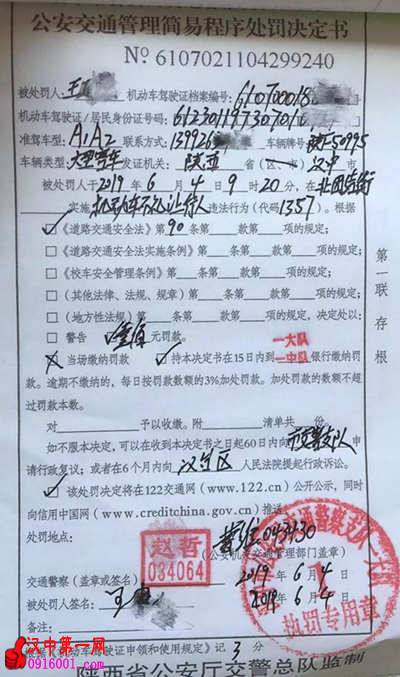 公安交通管理简易程序处罚决定书
No 6107021104299240
被处罚人 王 机动车驾驶证档案编号: 610700018
机动车驾驶证/居民身份证号码: 612301197307010
准驾车型: A1A2 联系方式: 139926 车辆牌号 陕F50995
车辆类型: 大型客车 发证机关: 陕西 省(区、市) 汉中 市
被处罚人于 2019 年 6 月 4 日 9 时 20 分, 在 北团结街
实施 机动车不礼让行人 违法行为(代码 1357)。根据
《道路交通安全法》第 90 条 第 款第 项的规定;
《道路交通安全法实施条例》第 条第 款第 项的规定;
《校车安全管理条例》第 条第 款第 项的规定;
(其他法律、法规、规章)第 条第 款第 项的规定;
(地方性法规)第 条第 款第 项的规定, 决定处以:
警告 壹佰 元罚款。
当场缴纳罚款 持本决定书在15日内到 一大队 一中队 银行缴纳罚
款。逾期不缴纳的, 每日按罚款数额的3%加处罚款。加处罚款的数额不超
过罚款本数。
对 予以收缴。附 清单共 份
如不服本决定, 可以在收到本决定书之日起60日内向 市交警支队 申
请行政复议; 或者在6个月内向 汉台区 人民法院提起行政诉讼。
该处罚决定将在122交通网(www.122.cn)公开公示, 同时
向信用中国网(www.creditchina.gov.cn)推送。
处罚地点: 043430
赵哲
034064
(公安机关交通管理部门盖章)
交通警察(盖章或签名) 2019 年 6 月 4 日
被处罚人签名: 王 2019 年 6 月 4 日
备注:
《机动车驾驶证申领和使用规定》记 3 分
陕西省公安厅交警总队监制
第一联 存根
交通警察支队一大队
1
执罚专用章
汉中第一网
0916001.com